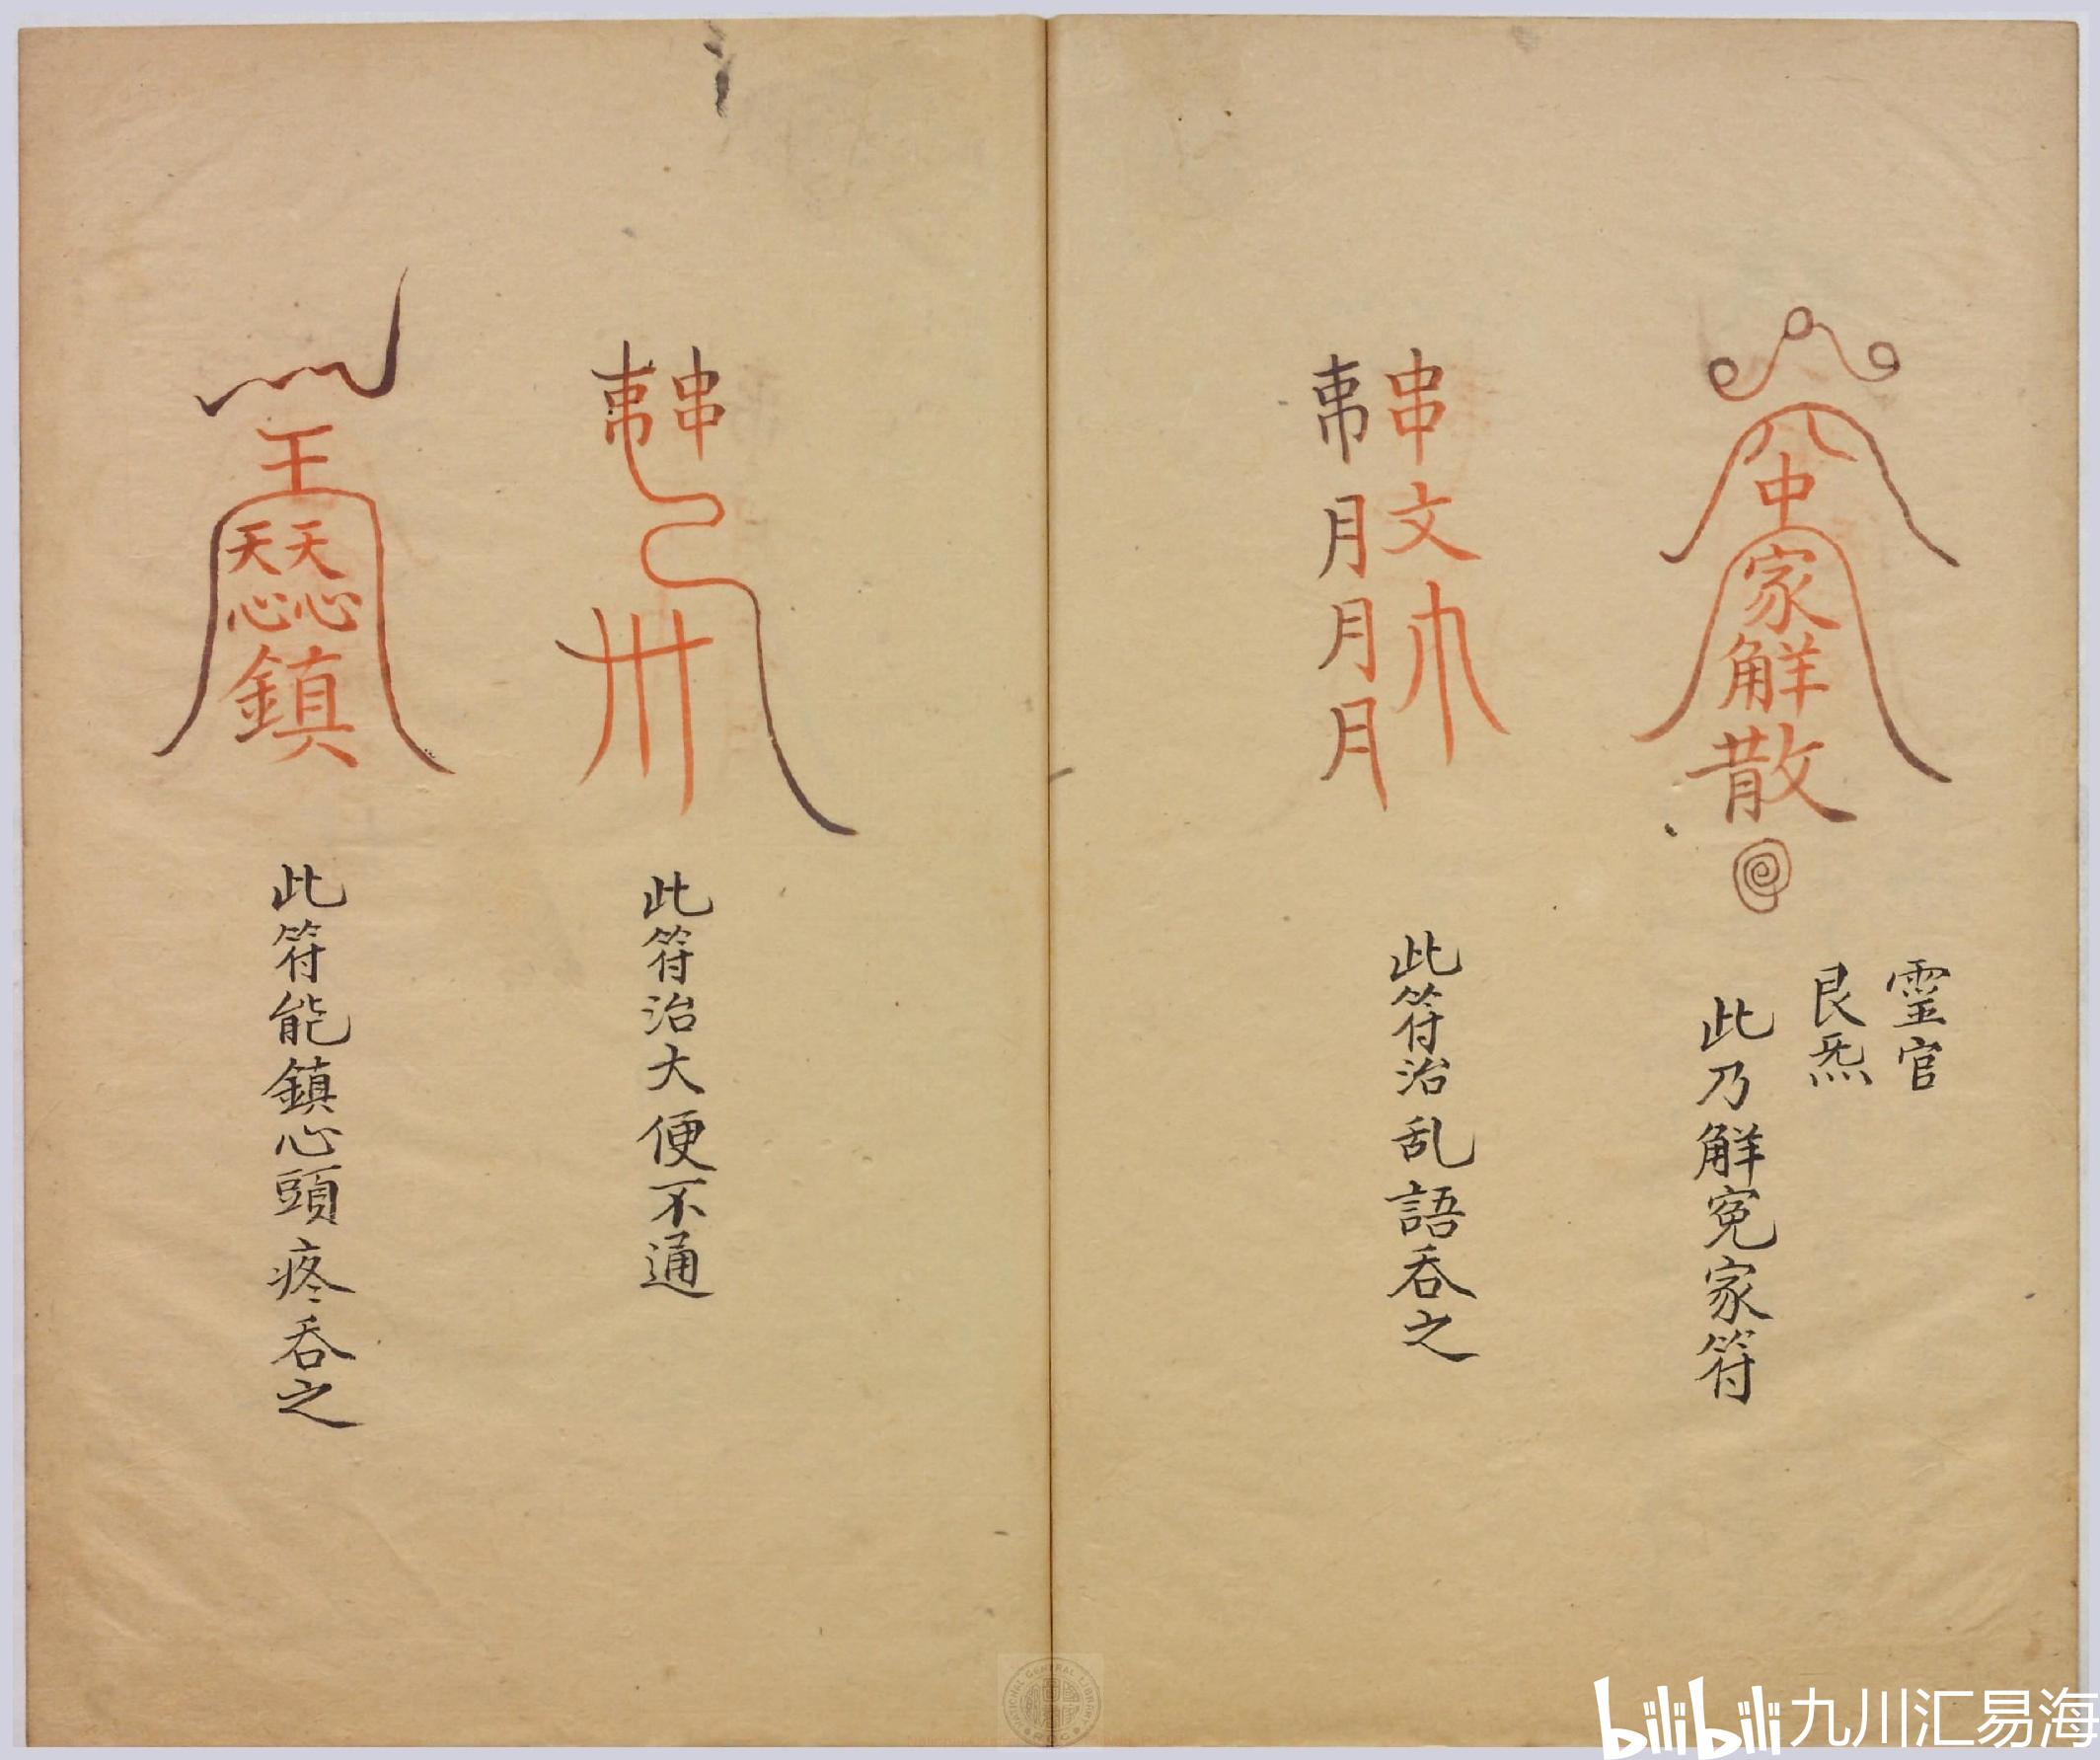 八中家觧散
靈官
艮炁
此乃觧寃家符
串文
月月月
此符治乱語吞之
串
此符治大便不通
王
天天
心心
鎮
此符能鎮心頭疼吞之
bilibili 九川汇易海